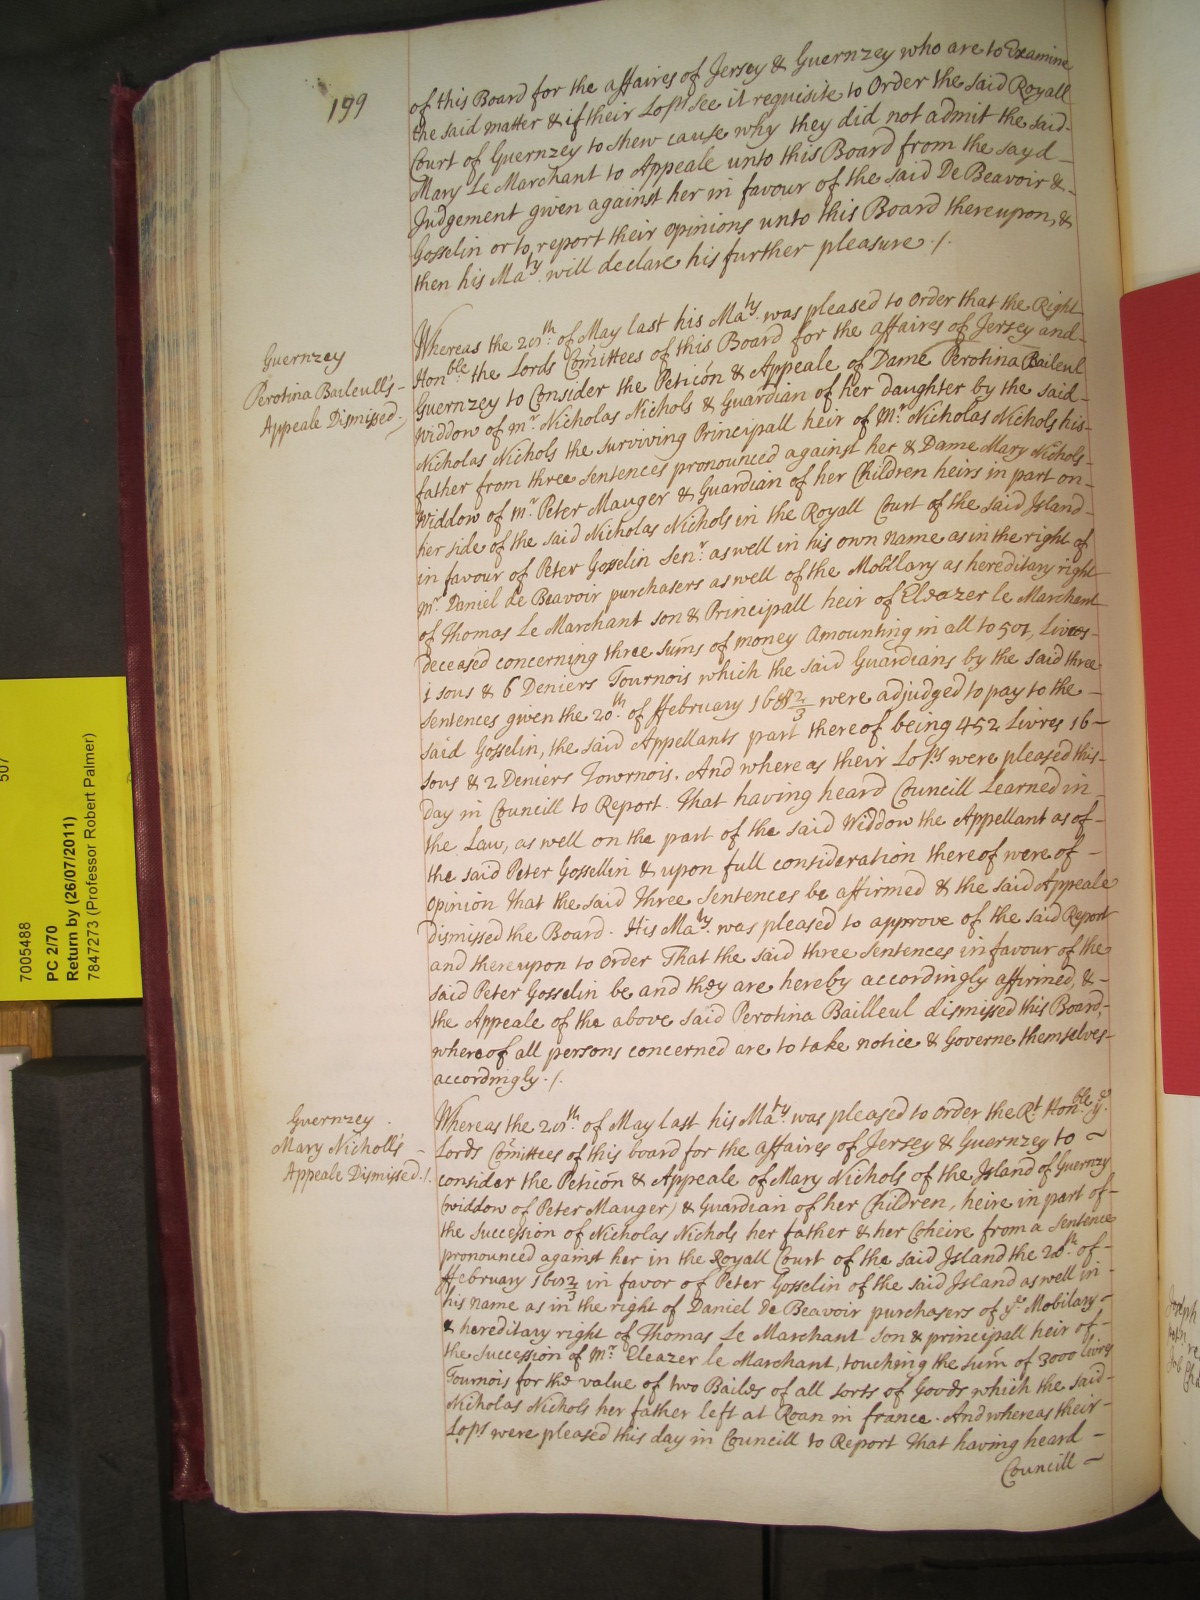 199
of this Board for the affaires of Jersey & Guernzey who are to Examine
the said matter & if their Lopps see it requisite to Order the said Royall
Court of Guernzey to shew cause why they did not admit the said
Mary Le Marchant to Appeale unto this Board from the sayd
Judgement given against her in favour of the said De Beavoir &
Gosselin or to report their opinions unto this Board thereupon, &
then his Maty. will declare his further pleasure ./.
Guernzey
Perotina Baileull's
Appeale Dismissed
Whereas the 20th. of May last his Maty. was pleased to Order that the Right
Honble. the Lords Comittees of this Board for the affaires of Jersey and
Guernzey to Consider the Peticon & Appeale of Dame Perotina Baileul
Widdow of mr. Nicholas Nichols & Guardian of her daughter by the said
Nicholas Nichols the surviving Principall heir of Mr. Nicholas Nichols his
father from three sentences pronounced against her & Dame Mary Nichols
Widdow of mr. Peter Mauger & Guardian of her Children heirs in part on
her side of the said Nicholas Nichols in the Royall Court of the said Island
in favour of Peter Gosselin Senr. as well in his own name as in the right of
mr. Daniel de Beavoir purchasers as well of the Mobllary as hereditary right
of Thomas Le Marchant son & Principall heir of Eleazer le Marchant
deceased concerning three sums of money Amounting in all to 501, Livres
1 sous & 6 Deniers Tournois which the said Guardians by the said three
sentences given the 20th. of ffebruary 1682/3 were adjudged to pay to the
said Gosselin, the said Appellants part thereof being 452 Livres 16
sous & 2 Deniers Towrnois. And whereas their Lopps were pleased this
Day in Councill to Report. That having heard Councill Learned in
the Law, as well on the part of the said Widdow the Appellant as of
the said Peter Gossellin & upon full consideration thereof were of
opinion That the said Three sentences be affirmed & the said Appeale
dismissed the Board. His Maty. was pleased to approve of the said Report
and thereupon to Order That the said three sentences in favour of the
said Peter Gosselin be and they are hereby accordingly affirmed, &
the Appeale of the above said Perotina Bailleul dismissed this Board,
whereof all persons concerned are to take notice & Governe themselves
accordingly ./.
Guernzey
Mary Nicholl's
Appeale Dismissed ./.
Whereas the 20th. of May last his Maty was pleased to order the Rt Honble ye
Lords Comittees of this board for the affaires of Jersey & Guernzey to
consider the Peticon & Appeale of Mary Nichols of the Island of Guernzy
(widdow of Peter Mauger) & Guardian of her Children, heire in part of
the succession of Nicholas Nichols her father & her Coheire from a sentence
pronounced against her in the Royall Court of the said Island the 20th. of
ffebruary 1682/3 in favor of Peter Gosselin of the said Island as well in
his name as in the right of Daniel De Beavoir purchasers of ye Mobilary
& hereditary right of Thomas Le Marchant son & principall heir of
the succession of Mr. Eleazer le Marchant, touching the sum of 3000 livres
Tournois for the value of two Bailes of all sorts of Goods which the said
Nicholas Nichols her father left at Roan in france. And whereas their
Lopps were pleased this day in Councill to Report That having heard
Councill
507
7005488
PC 2/70
Return by (26/07/2011)
7847273 (Professor Robert Palmer)